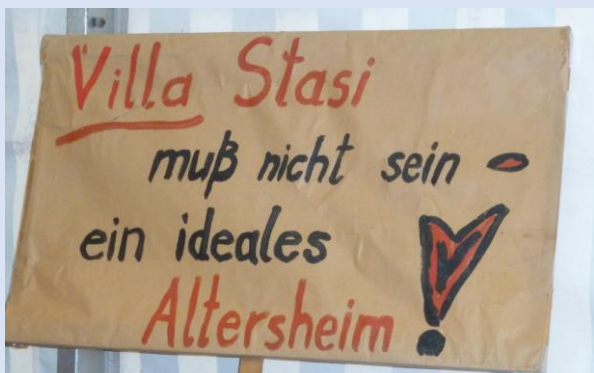 Villa Stasi
muß nicht sein -
ein ideales
Altersheim!